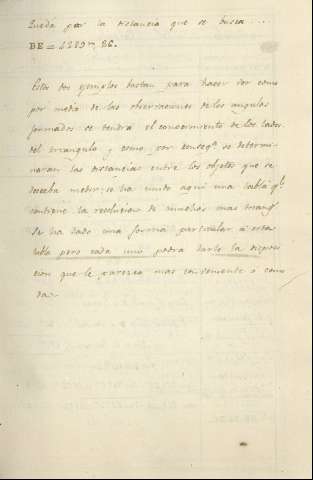 Queda por la distancia que se busca...
DE = 4289, 26.
Estos dos exemplos bastan para hacer ver como
por medio de las observaciones de los angulos
formados se tendrá el conocimiento de los lados
del triangulo y como por conseqª se determi-
naran las distancias entre los objetos que se
deseaba medir; se ha unido aqui una tabla qᵉ
contiene la resolucion de muchos mas triang.ˢ
Se ha dado una forma particular á esta
tabla pero cada uno podra darle la disposi
cion que le parezca mas conveniente ó como
da.